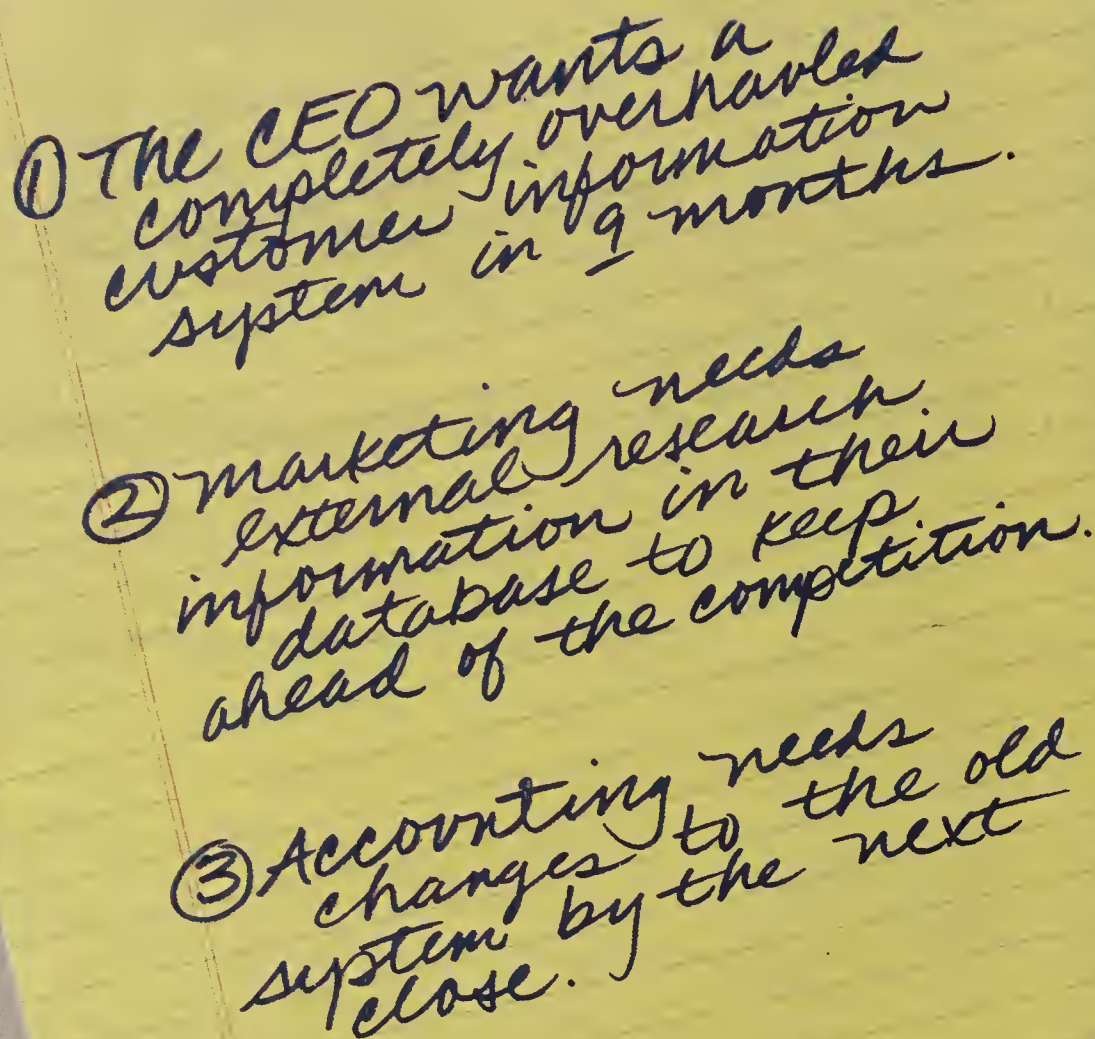 ① The CEO wants a
completely overhauled
customer information
system in 9 months.
② Marketing needs
external research
information in their
database to keep
ahead of the competition.
③ Accounting needs
changes to the old
system by the next
close.